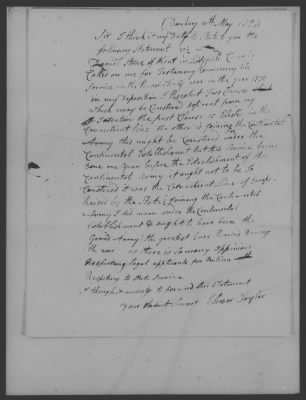 Danbury 10th May
Sir I think it my Duty to State to you the
following Statement viz
Daniel Stone of Kent in Litchfield County
Called on me for Testamony Concerning his
Service in the Revolutionary war in the year 1776
on my Deposition I Recolect Two Clauses
which may be Construed different from my
Intention the first Clause is Elicots in the
Connecticut line the other is joining the Continental
Army this might be Construed under the
Continental Establishment but this Service being
Done one year before the Establishment of the
Continental Army it ought not to be So
Construed it was the Connecticut Line of Troops
Raised by the State, & joining the Continental
Army I did mean under the Continental
Establishment & ought to have been the
Grand Army the greatest Ever Raised During
the war as there is So many oppinions
Respecting Legal applicants for
Respecting to State Service
I thought it I might to forward this Statement
your Humbl Servant Eleazer Taylor